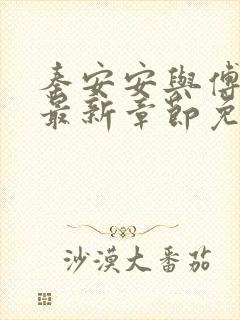 秦安安與傅
最新章節免
沙漠大番茄